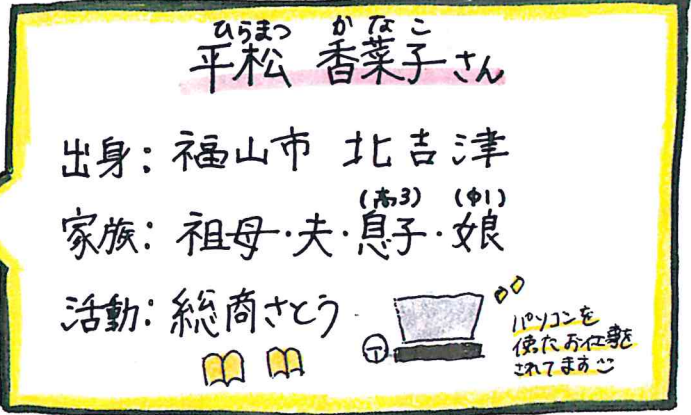 ひらまつ かなこ
平松 香菜子さん
出身: 福山市 北吉津
(高3) (中1)
家族: 祖母・夫・息子・娘
活動: 総商さとう
パソコンを
使ったお仕事を
されてます